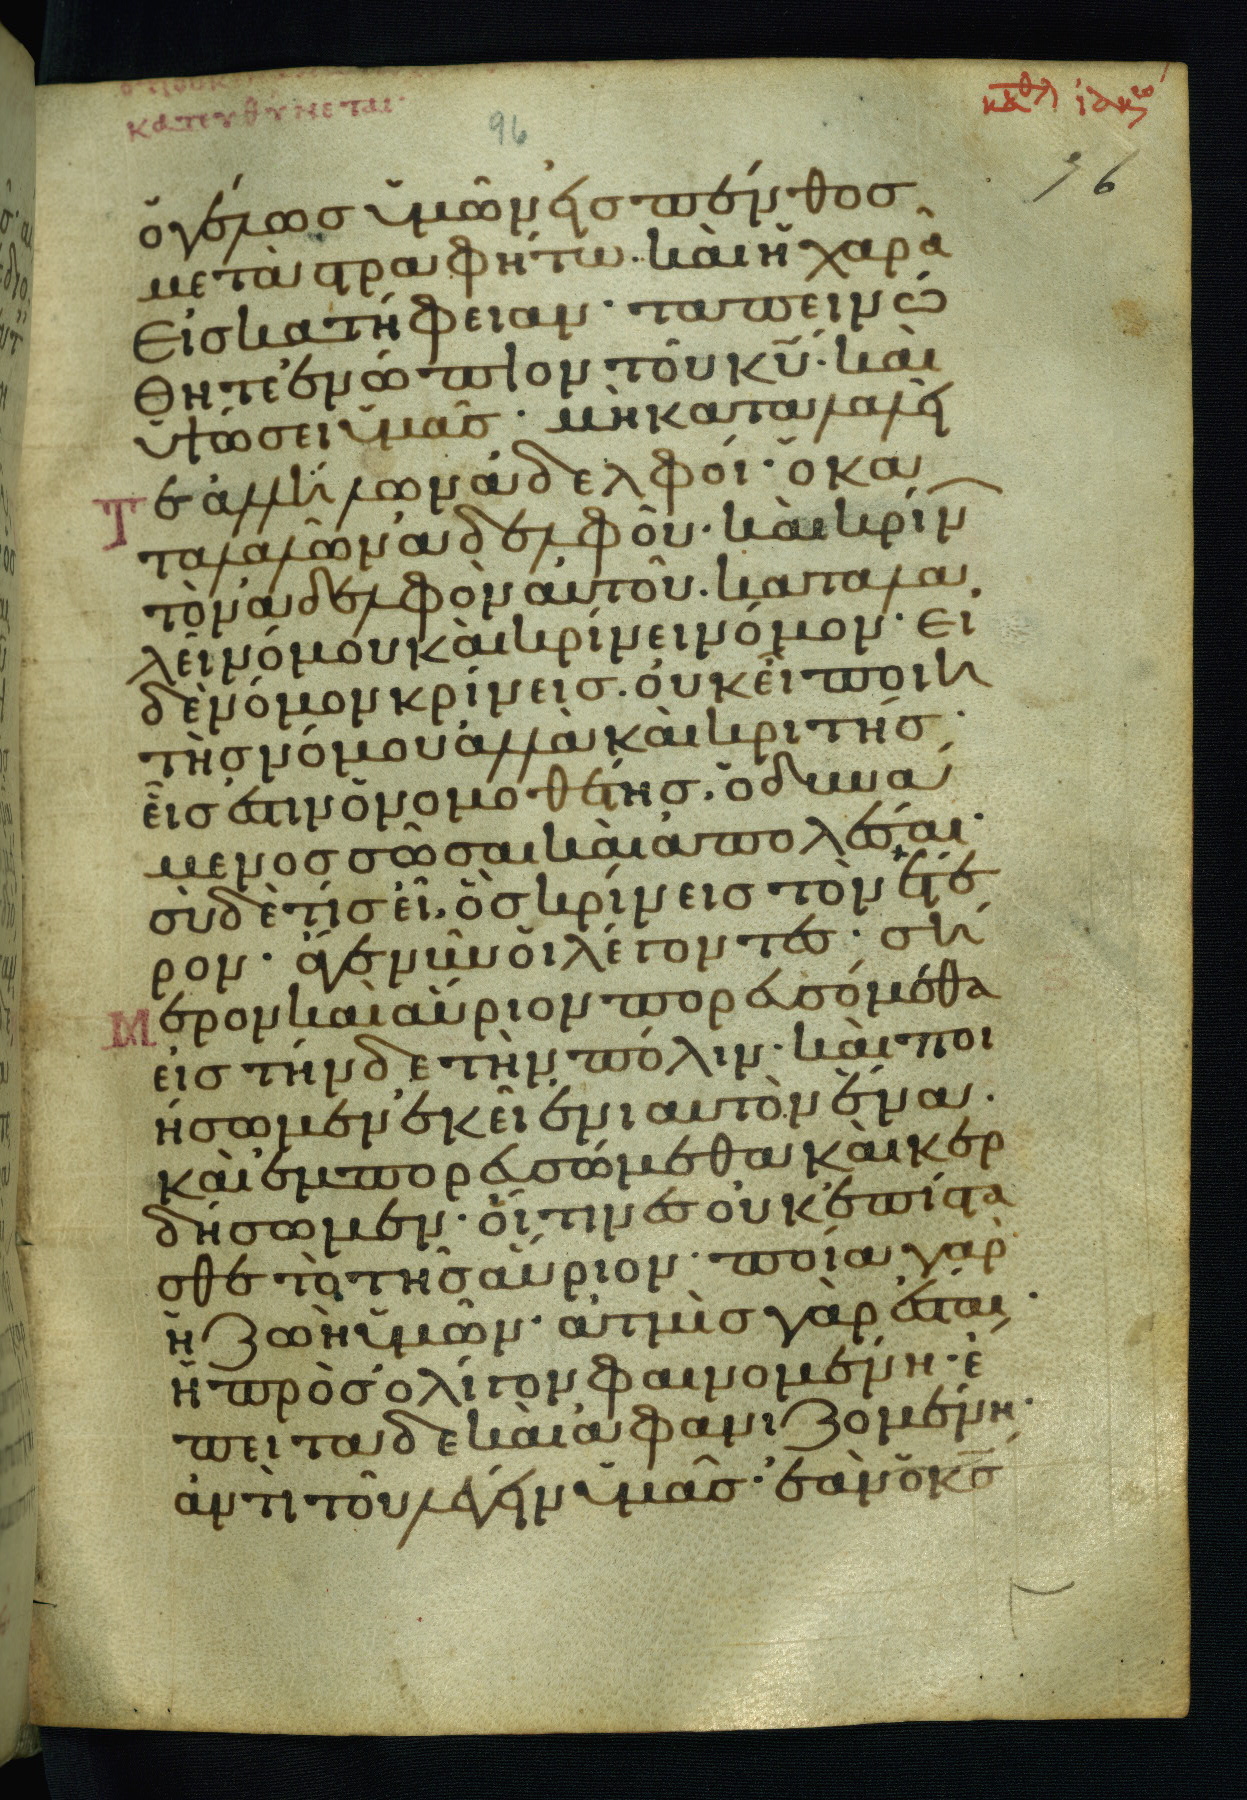 κατευθύνεται·
96
96
ὁ γέλως ὑμῶν εἰς πένθος
μεταστραφήτω· καὶ ἡ χαρὰ
εἰς κατήφειαν· ταπεινώ
θητε ἐνώπιον τοῦ κυ̅· καὶ
ὑψώσει ὑμᾶς· μὴ καταλαλεῖ
τε ἀλλήλων ἀδελφοί· ὁ κα
ταλαλῶν ἀδελφοῦ· καὶ κρίν
τὸν ἀδελφὸν αὐτοῦ· καταλα
λεῖ νόμου καὶ κρίνει νόμον· εἰ
δὲ νόμον κρίνεις· οὐκ εἶ ποιη
τὴς νόμου ἀλλὰ καὶ κριτής·
εἷς ἐστιν ὁ νομοθέτης· ὁ δυνά
μενος σῶσαι καὶ ἀπολέσαι·
σὺ δὲ τίς εἶ· ὃς κρίνεις τὸν ἕτε
ρον· ἄγε νῦν οἱ λέγοντες· σή
μερον καὶ αὔριον πορευσόμεθα
εἰς τήνδε τὴν πόλιν· καὶ ποι
ήσωμεν ἐκεῖ ἐνιαυτὸν ἕνα·
καὶ ἐμπορευσώμεθα καὶ κερ
δήσωμεν· οἵτινες οὐκ ἐπίστα
σθε τὰ τῆς αὔριον· ποία γὰρ
ἡ ζωὴ ὑμῶν· ἀτμὶς γὰρ ἔσται·
ἡ πρὸς ὀλίγον φαινομένη· ἔ
πειτα δὲ καὶ ἀφανιζομένη·
ἀντὶ τοῦ λέγειν ὑμᾶς· ἐὰν ὁ κς̅